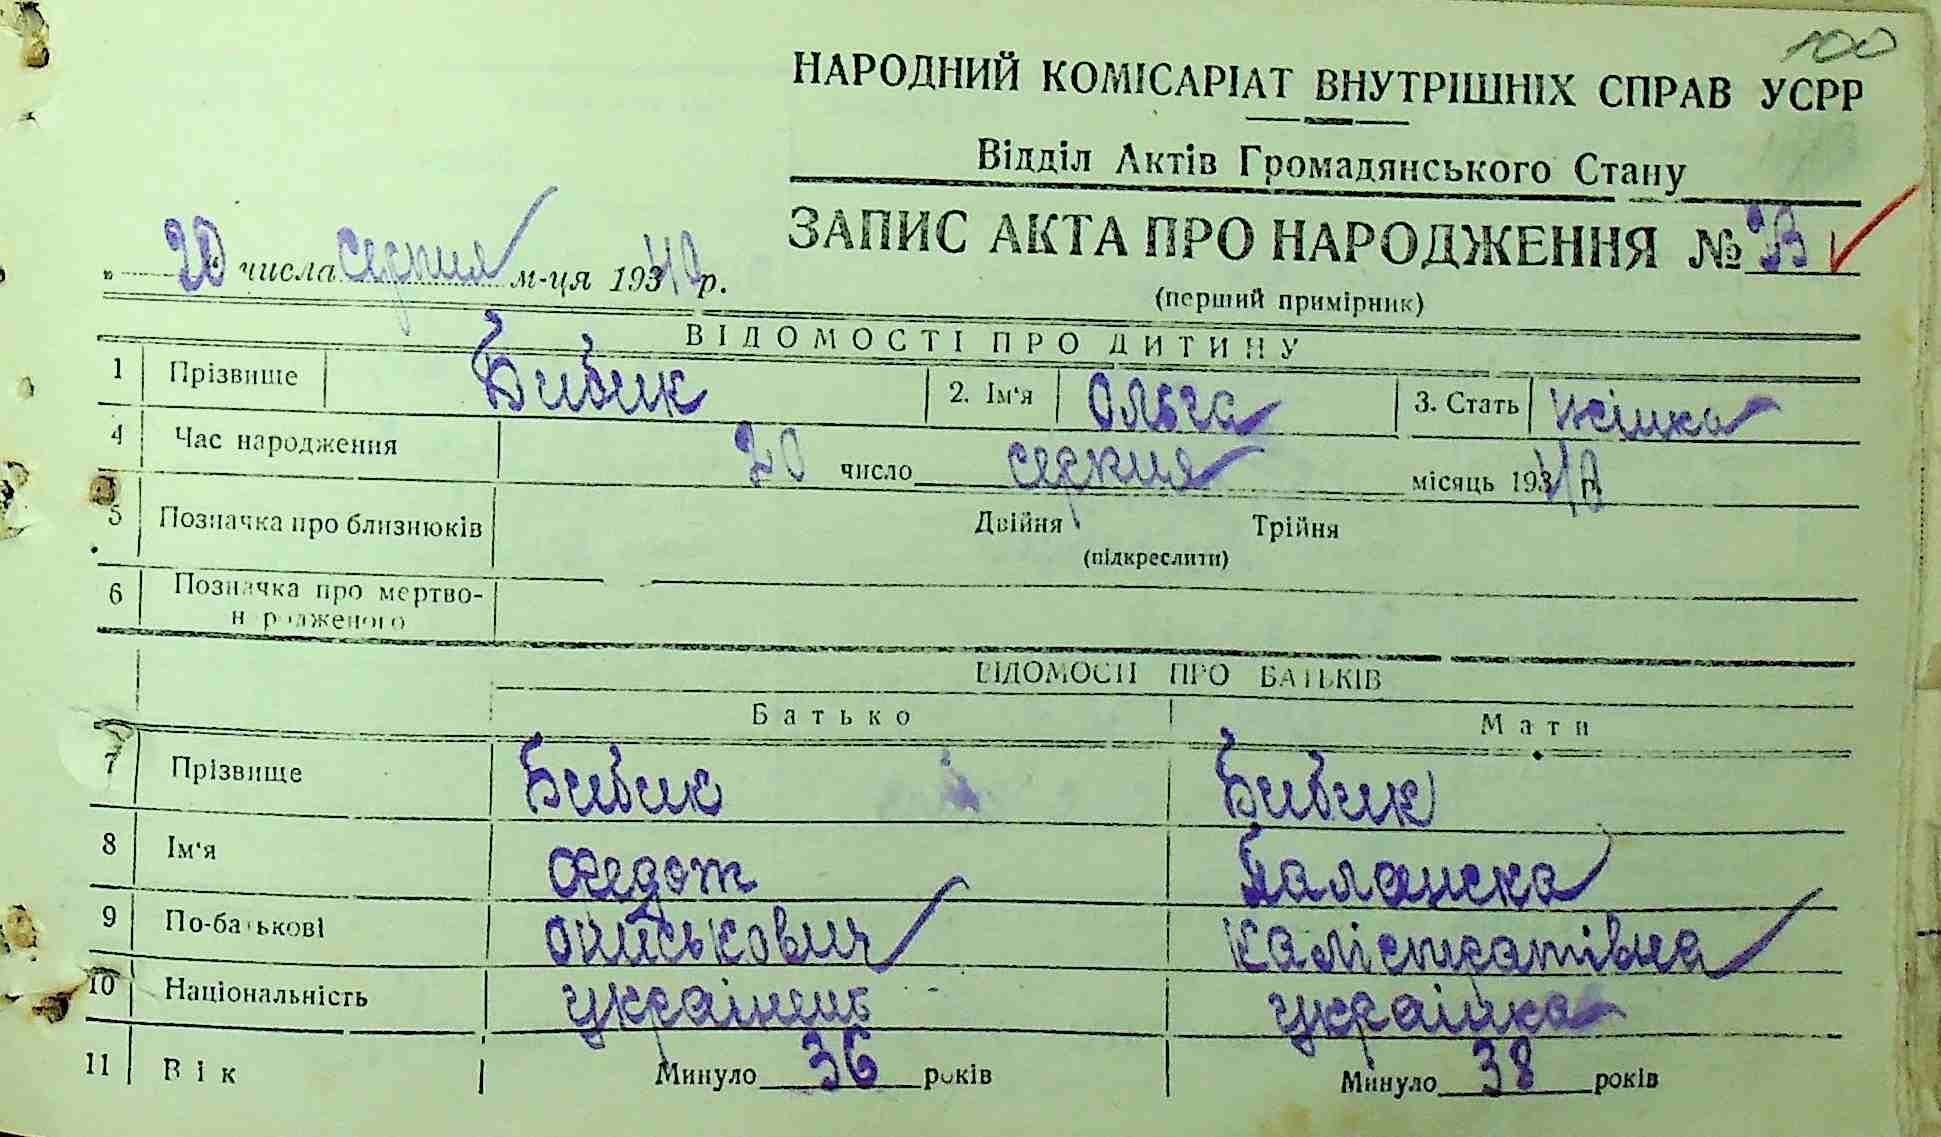 100
НАРОДНИЙ КОМІСАРІАТ ВНУТРІШНІХ СПРАВ УСРР
Відділ Актів Громадянського Стану
ЗАПИС АКТА ПРО НАРОДЖЕННЯ №
„ 20 “ числа серпня м-ця 1940 р.
(перший примірник)
ВІДОМОСТІ ПРО ДИТИНУ
1 Прізвище Бибик 2. Ім'я Ольга 3. Стать жінка
4 Час народження 20 число серпня місяць 1940 р.
5 Позначка про близнюків Двійня Трійня
(підкреслити)
6 Позначка про мертво-
народженого
ВІДОМОСТІ ПРО БАТЬКІВ
Батько Мати
7 Прізвище Бибик Бибик
8 Ім'я Федот Палажка
9 По-батькові Калістратівна
10 Національність українець українка
11 Вік Минуло 36 років Минуло 38 років